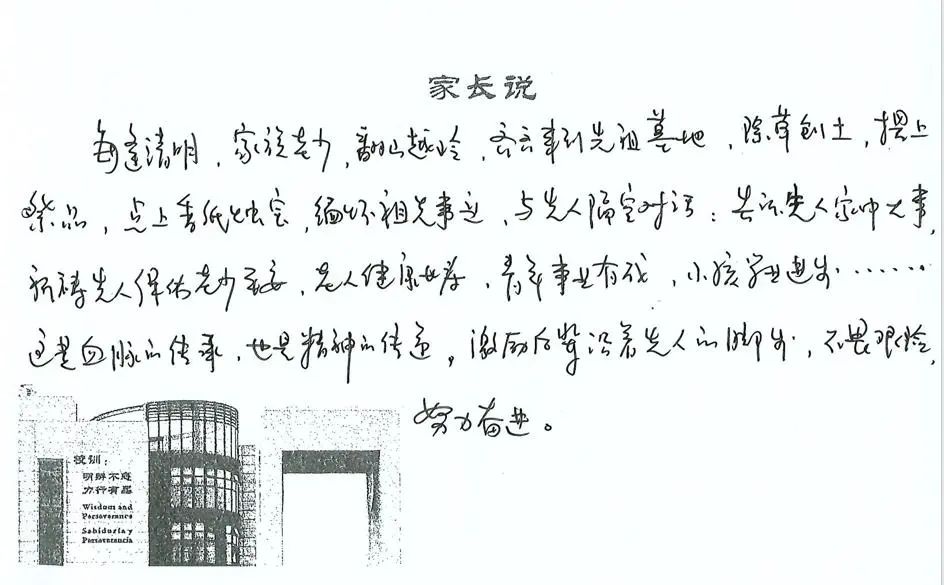 家长说
每逢清明，家族老少，翻山越岭，齐齐来到先祖墓地，除草刨土，摆上
祭品，点上香纸蜡宝，缅怀祖先事迹，与先人隔空对话：告诉先人家中大事，
祈祷先人保佑老少平安，老人健康长寿，青年事业有成，小孩学业进步……
这是血脉的传承，也是精神的传递，激励后辈沿着先人的脚步，不畏艰险，
努力奋进。
校训：
明辨不惑
力行有恩
Wisdom and
Perseverance
Sabiduría y
Perseverancia